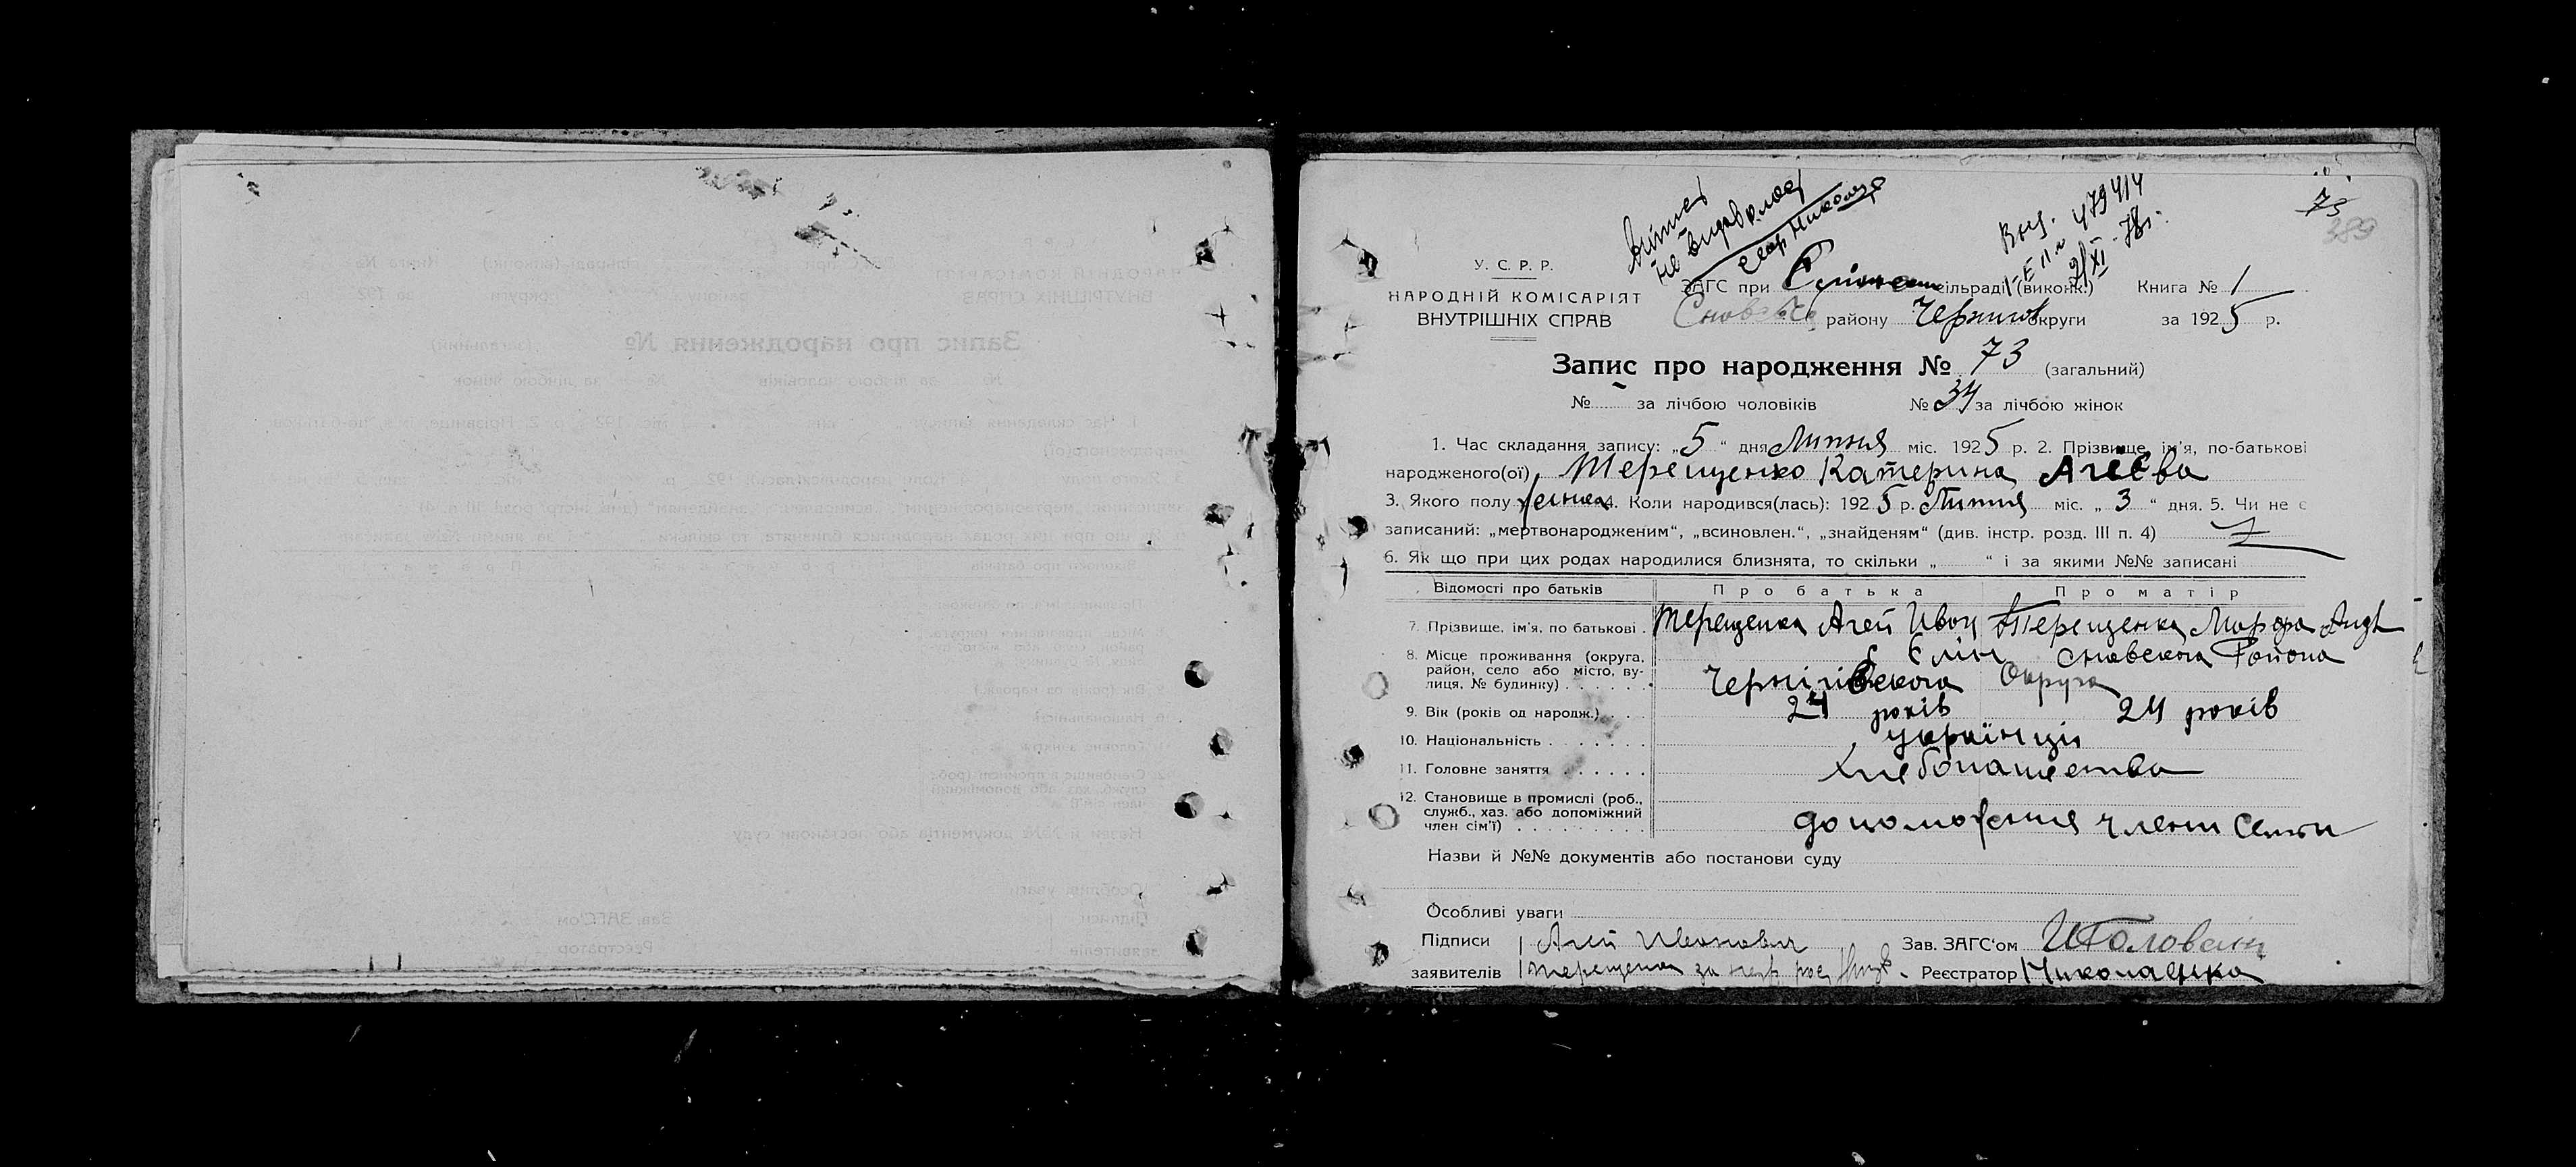 75
389
Витяг
не видавлася
Внз. 479414
1-ЕЛ
21/XI-78г.
У. С. Р. Р.
НАРОДНІЙ КОМІСАРІЯТ
ВНУТРІШНІХ СПРАВ
ЗАГС при сільраді (виконк.) Книга № 1
району Чернигов округи за 1925 р.
Запис про народження № 73 (загальний)
№ за лічбою чоловіків № 34 за лічбою жінок
1. Час складання запису: „5“ дня Липня міс. 1925 р. 2. Прізвище, ім'я, по-батькові
народженого(ої) Терещенко Катерина Агеєва
3. Якого полу женска 4. Коли народився(лась): 1925 р. Липня міс. „3“ дня. 5. Чи не є
записаний: „мертвонародженим“, „всиновлен.“, „знайденям“ (див. інстр. розд. III п. 4)
6. Як що при цих родах народилися близнята, то скільки „ “ і за якими №№ записані
Відомості про батьків Про батька Про матір
7. Прізвище, ім'я, по батькові Терещенка Агей Иван Терещенка Марфа Анд
8. Місце проживання (округа, район, село або місто, вулиця, № будинку) с Єлін Сновского Района
Чернігівского Округа
9. Вік (років од народж.) 24 років 24 років
10. Національність українці
11. Головне заняття хлебопашество
12. Становище в промислі (роб., служб., хаз. або допоміжний член сім'ї) допоможения члени семи
Назви й №№ документів або постанови суду
Особливі уваги
Підписи Агей Иванович Зав. ЗАГС'ом
заявителів Терещенка за Реєстратор Николаенка